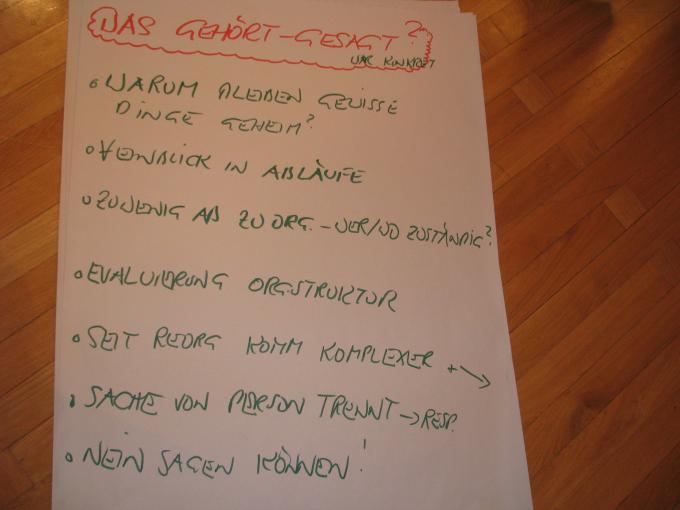 WAS GEHÖRT-GESAGT?
WAS KONKRET
• WARUM BLEIBEN GEWISSE
DINGE GEHEIM?
• EINBLICK IN ABLÄUFE
• ZUWENIG AB ZU ORG. - WER/WO ZUSTÄNDIG?
• EVALUIERUNG ORGSTRUKTUR
• SEIT REORG KOMM KOMPLEXER + →
• SACHE VON PERSON TRENNT → RESP.
• NEIN SAGEN KÖNNEN!